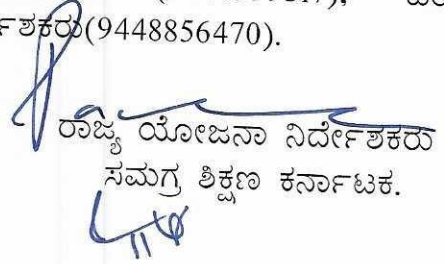 ರ್ದೇಶಕರು(9448856470).
ರಾಜ್ಯ ಯೋಜನಾ ನಿರ್ದೇಶಕರು
ಸಮಗ್ರ ಶಿಕ್ಷಣ ಕರ್ನಾಟಕ.